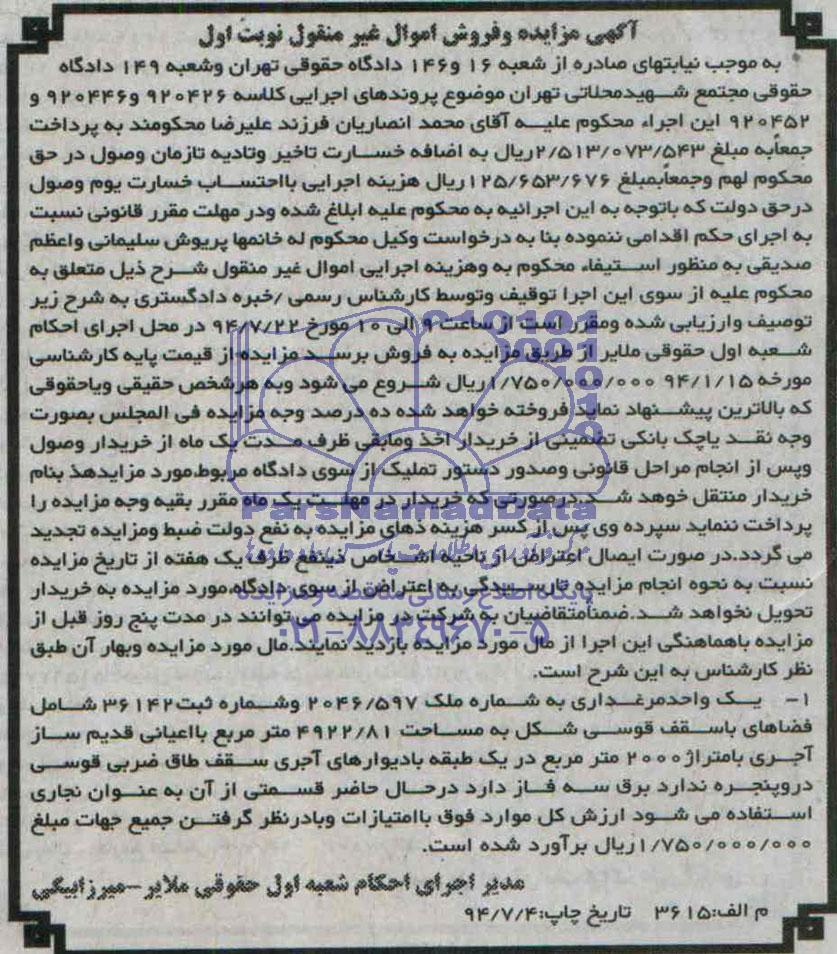 آگهی مزایده وفروش اموال غیر منقول نوبت اول
به موجب نیابتهای صادره از شعبه ۱۶ و۱۴۶ دادگاه حقوقی تهران وشعبه ۱۴۹ دادگاه
حقوقی مجتمع شهیدمحلاتی تهران موضوع پروندهای اجرایی کلاسه ۹۲۰۴۲۶ و۹۲۰۴۴۶ و
۹۲۰۴۵۲ این اجراء محکوم علیه آقای محمد انصاریان فرزند علیرضا محکومند به پرداخت
جمعاًبه مبلغ ۲/۵۱۳/۰۷۳/۵۴۳ریال به اضافه خسارت تاخیر وتادیه تازمان وصول در حق
محکوم لهم وجمعاًبمبلغ ۱۲۵/۶۵۳/۶۷۶ریال هزینه اجرایی بااحتساب خسارت یوم وصول
درحق دولت که باتوجه به این اجرائیه به محکوم علیه ابلاغ شده ودر مهلت مقرر قانونی نسبت
به اجرای حکم اقدامی ننموده بنا به درخواست وکیل محکوم له خانمها پریوش سلیمانی واعظم
صدیقی به منظور استیفاء محکوم به وهزینه اجرایی اموال غیر منقول شرح ذیل متعلق به
محکوم علیه از سوی این اجرا توقیف وتوسط کارشناس رسمی /خبره دادگستری به شرح زیر
توصیف وارزیابی شده ومقرر است از ساعت ۹ الی ۱۰ مورخ ۹۴/۷/۲۲ در محل اجرای احکام
شعبه اول حقوقی ملایر از طریق مزایده به فروش برسد مزایده از قیمت پایه کارشناسی
مورخه ۹۴/۱/۱۵ ۱/۷۵۰/۰۰۰/۰۰۰ریال شروع می شود وبه هرشخص حقیقی ویاحقوقی
که بالاترین پیشنهاد نماید فروخته خواهد شده ده درصد وجه مزایده فی المجلس بصورت
وجه نقد یاچک بانکی تضمینی از خریدار اخذ ومابقی ظرف مدت یک ماه از خریدار وصول
وپس از انجام مراحل قانونی وصدور دستور تملیک از سوی دادگاه مربوط،مورد مزایدهذ بنام
خریدار منتقل خواهد شد.درصورتی که خریدار در مهلت یک ماه مقرر بقیه وجه مزایده را
پرداخت ننماید سپرده وی پس از کسر هزینه ذهای مزایده به نفع دولت ضبط ومزایده تجدید
می گردد.در صورت ایصال اعتراض از ناحیه اشخاص ذینفع ظرف یک هفته از تاریخ مزایده
نسبت به نحوه انجام مزایده تارسیدگی به اعتراض از سوی دادگاه،مورد مزایده به خریدار
تحویل نخواهد شد.ضمنامتقاضیان به شرکت در مزایده می توانند در مدت پنج روز قبل از
مزایده باهماهنگی این اجرا از مال مورد مزایده بازدید نمایند.مال مورد مزایده وبهار آن طبق
نظر کارشناس به این شرح است.
۱- یک واحدمرغداری به شماره ملک ۲۰۴۶/۵۹۷ وشماره ثبت۳۶۱۴۲ شامل
فضاهای باسقف قوسی شکل به مساحت ۴۹۲۲/۸۱ متر مربع بااعیانی قدیم ساز
آجری بامتراژ۲۰۰۰ متر مربع در یک طبقه بادیوارهای آجری سقف طاق ضربی قوسی
دروپنجره ندارد برق سه فاز دارد درحال حاضر قسمتی از آن به عنوان نجاری
استفاده می شود ارزش کل موارد فوق باامتیازات وبادرنظر گرفتن جمیع جهات مبلغ
۱/۷۵۰/۰۰۰/۰۰۰ریال برآورد شده است.
مدیر اجرای احکام شعبه اول حقوقی ملایر–میرزابیگی
م الف:۳۶۱۵ تاریخ چاپ:۹۴/۷/۴
ParsNamadData
پایگاه اطلاع رسانی مناقصه و مزایده
۰۲۱-۸۸۳۴۹۶۷۰-۵